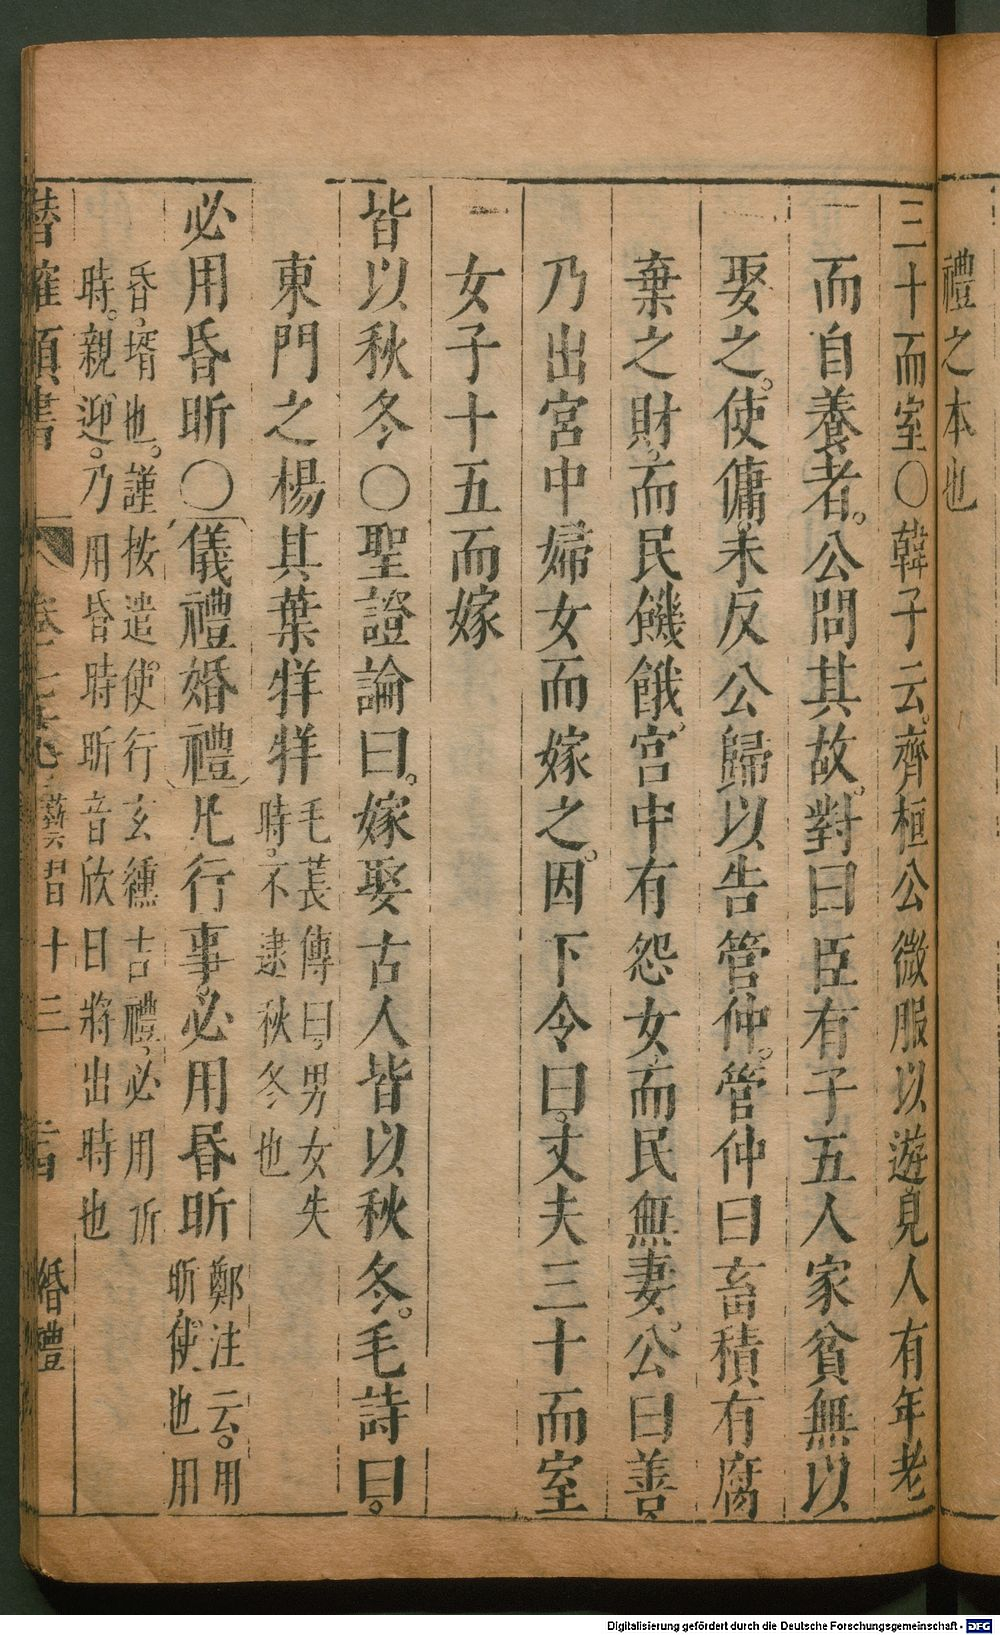 禮之本也
三十而室○韓子云齊桓公微服以遊見人有年老
而自養者。公問其故。對曰臣有子五人家貧無以
娶之。使傭未反公歸以告管仲。管仲曰畜積有腐
棄之財。而民饑餓。宮中有怨女而民無妻。公曰善
乃出宮中婦女而嫁之。因下令曰。丈夫三十而室
女子十五而嫁
皆以秋冬○聖證論曰。嫁娶古人皆以秋冬。毛詩曰。
東門之楊其葉牂牂毛萇傳曰。男女失
時。不逮秋冬也
必用昏昕○儀禮婚禮凡行事。必用昏昕鄭注云。用
昕使也用
昏壻也。謹按遣使行玄纁古禮必用昕
時。親迎。乃用昏時昕音欣日將出時也
婚禮
Digitalisierung gefördert durch die Deutsche Forschungsgemeinschaft - DFG